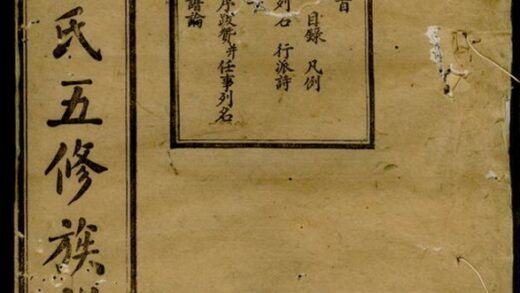 首
目錄 凡例
列名 行派詩
序跋贊并任事列名
譜論
氏五修族